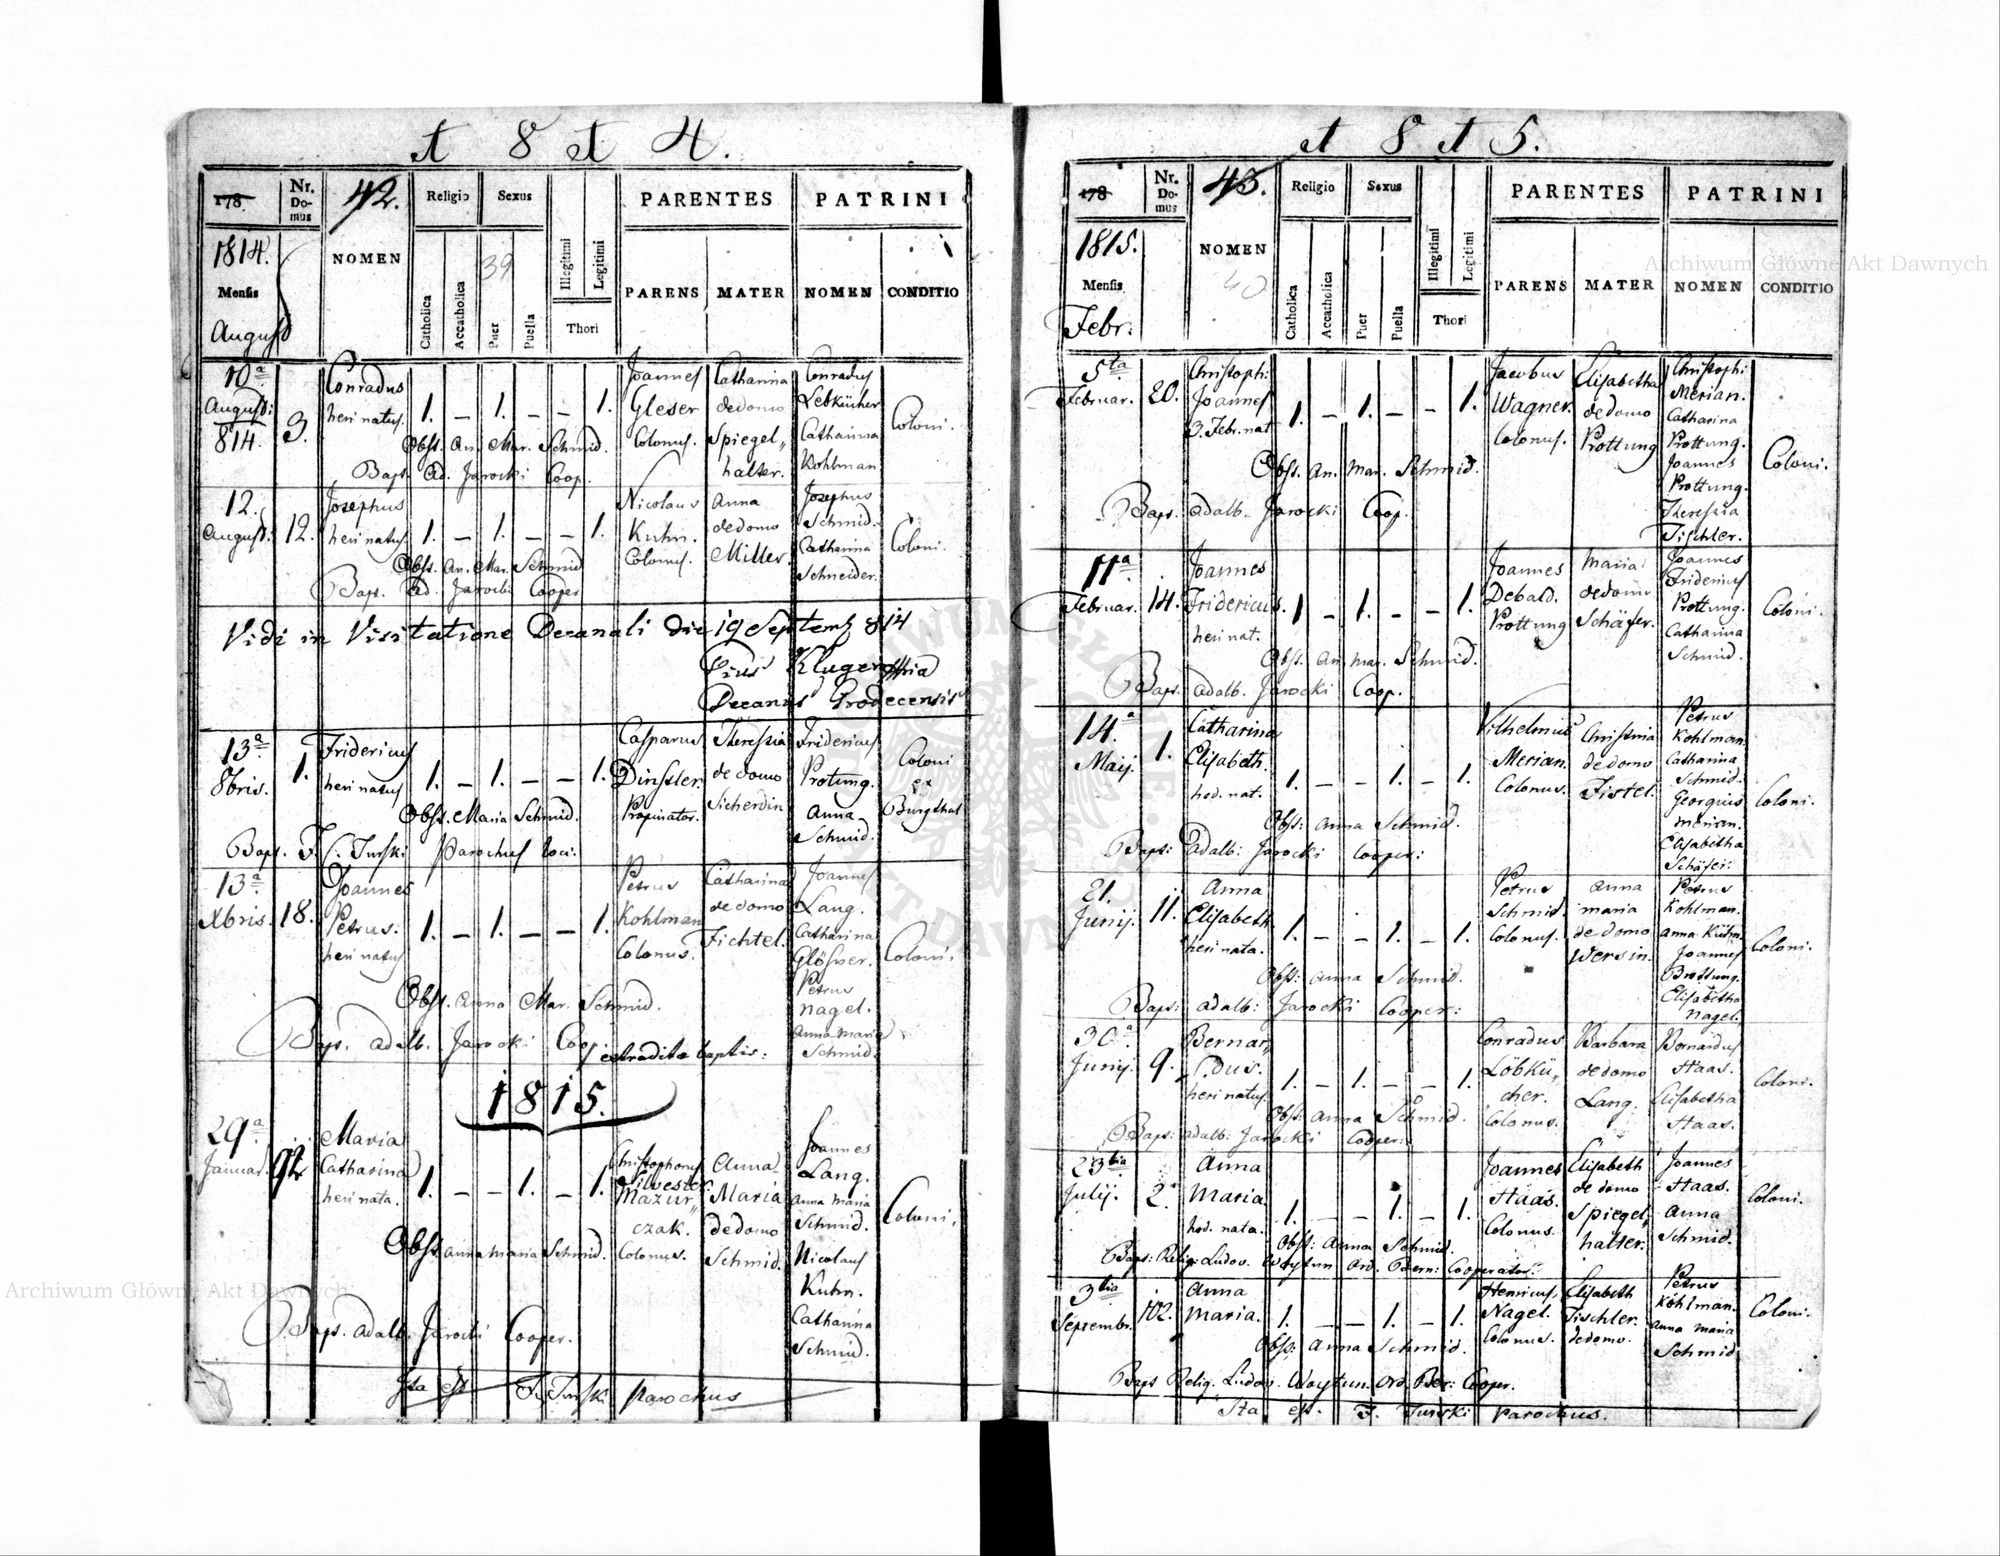 1 8 1 4.
178
Nr. Domus
42.
Religio
Sexus
PARENTES
PATRINI
1814.
Mensis
August
NOMEN
39
Catholica
Accatholica
Puer
Puella
Illegitimi
Legitimi
Thori
PARENS
MATER
NOMEN
CONDITIO
10ª August: 814.
3.
Conradus heri natus.
1. – 1. – – 1.
Joannes Gleser Colonus.
Catharina de domo Spiegel„halter.
Conradus Lebkücher Catharina Kohlman
Coloni.
Obst. An. Mar. Schmid.
Bapt. Ad. Jarocki Coop.
12. August:
12.
Josephus heri natus
1. – 1. – – 1.
Nicolaus Kuhn. Colonus.
Anna de domo Miller.
Josephus Schmid. Catharina Schneider.
Coloni.
Obst. An. Mar. Schmid
Bapt. Ad. Jarocki Cooper
Vidi in Visitatione Decanali die 19 Septemb 814
Pius Kluger
Decanus Grodecensis
13ª 8bris.
1.
Fridericus heri natus
1. – 1. – – 1.
Casparus Dinstler. Propinator.
Theresia de domo Sicherdin
Fridericus Protung. Anna Schmid.
Coloni ex Burgthal
Obst. Maria Schmid.
Bapt. F. C. Turski Parochus loci.
13ª Xbris.
18.
Joannes Petrus. heri natus
1. – 1. – – 1.
Petrus Kohlman Colonus.
Catharina de domo Fichtel.
Joannes Lang. Catharina Glösser. Petrus Nagel. Anna Maria Schmid.
Coloni.
Obst. Anna Mar. Schmid.
Bapt. adalb. Jarocki Coop. extradita baptis:
1815.
29ª Januar.
92.
Maria Catharina heri nata.
1. – – 1. – 1.
Christophorus Silvester Mazur„czak. Colonus.
Anna Maria de domo Schmid.
Joannes Lang. Anna Maria Schmid. Nicolaus Kuhn. Catharina Schmid.
Coloni.
Obst. anna maria Schmid.
Bapt. adalb. Jarocki Cooper.
Ita est F. Turski parochus
1 8 1 5.
178
Nr. Domus
43.
Religio
Sexus
PARENTES
PATRINI
1815.
Mensis
Febr.
NOMEN
40
Catholica
Accatholica
Puer
Puella
Illegitimi
Legitimi
Thori
PARENS
MATER
NOMEN
CONDITIO
5ta Februar.
20.
Christoph: Joannes 3. Febr. nat
1. – 1. – – 1.
Jacobus Wagner. Colonus.
Elisabetha de domo Prottung
Christoph: Merian. Catharina Prottung. Joannes Prottung. Theresia Tischler.
Coloni.
Obst. An. Mar. Schmid.
Bapt. adalb. Jarocki Coop.
11ª Februar.
14.
Joannes Fridericus. heri nat.
1 – 1. – – 1.
Joannes Debald. Prottung
Maria de domo Schäfer.
Joannes Fridericus Prottung. Catharina Schmid.
Coloni.
Obst. An. mar. Schmid.
Bapt. adalb. Jarocki Coop.
14.ª Maij.
1.
Catharina Elisabeth. hod. nat.
1. – – 1. – 1.
Vilhelmus Merian. Colonus.
Christina de domo Fistel.
Petrus Kohlman. Catharina Schmid. Georgius Merian. Elisabetha Schäfer.
Coloni.
Obst: Anna Schmid.
Bapt: adalb: Jarocki Cooper:
21. Junij.
11.
Anna Elisabeth. heri nata.
1. – – 1. – 1.
Petrus Schmid. Colonus.
Anna maria de domo Wersin.
Petrus Kohlman. Anna Kühn. Joannes Brottung. Elisabetha Nagel.
Coloni.
Obst: Anna Schmid.
Bapt: adalb: Jarocki Cooper:
30.ª Junij.
9.
Bernar„dus. heri natus.
1. – 1. – – 1.
Conradus Löbkü„cher. Colonus.
Barbara de domo Lang.
Bernardus Haas. Elisabetha Haas.
Coloni.
Obst: Anna Schmid.
Bapt: adalb: Jarocki Cooper:
23tia Julij.
2.
Anna Maria. hod. nata.
1. – – 1. – 1.
Joannes Haas. Colonus.
Elisabeth de domo Spiegel„halter.
Joannes Haas. Anna Schmid.
Coloni.
Obst: Anna Schmid.
Bapt: Relig: Ludov. Woytun Ord. Bern: Cooperator.
3tia Septembr.
102.
Anna Maria.
1. – – 1. – 1.
Henricus Nagel. Colonus.
Elisabeth Tischler. de domo.
Petrus Kohlman. Anna Maria Schmid
Coloni.
Obst: Anna Schmid.
Bapt Relig. Ludov. Woytun. Ord. Ber: Cooper.
Ita est. F. Turski parochus.
Archiwum Główne Akt Dawnych
Archiwum Główne Akt Dawnych